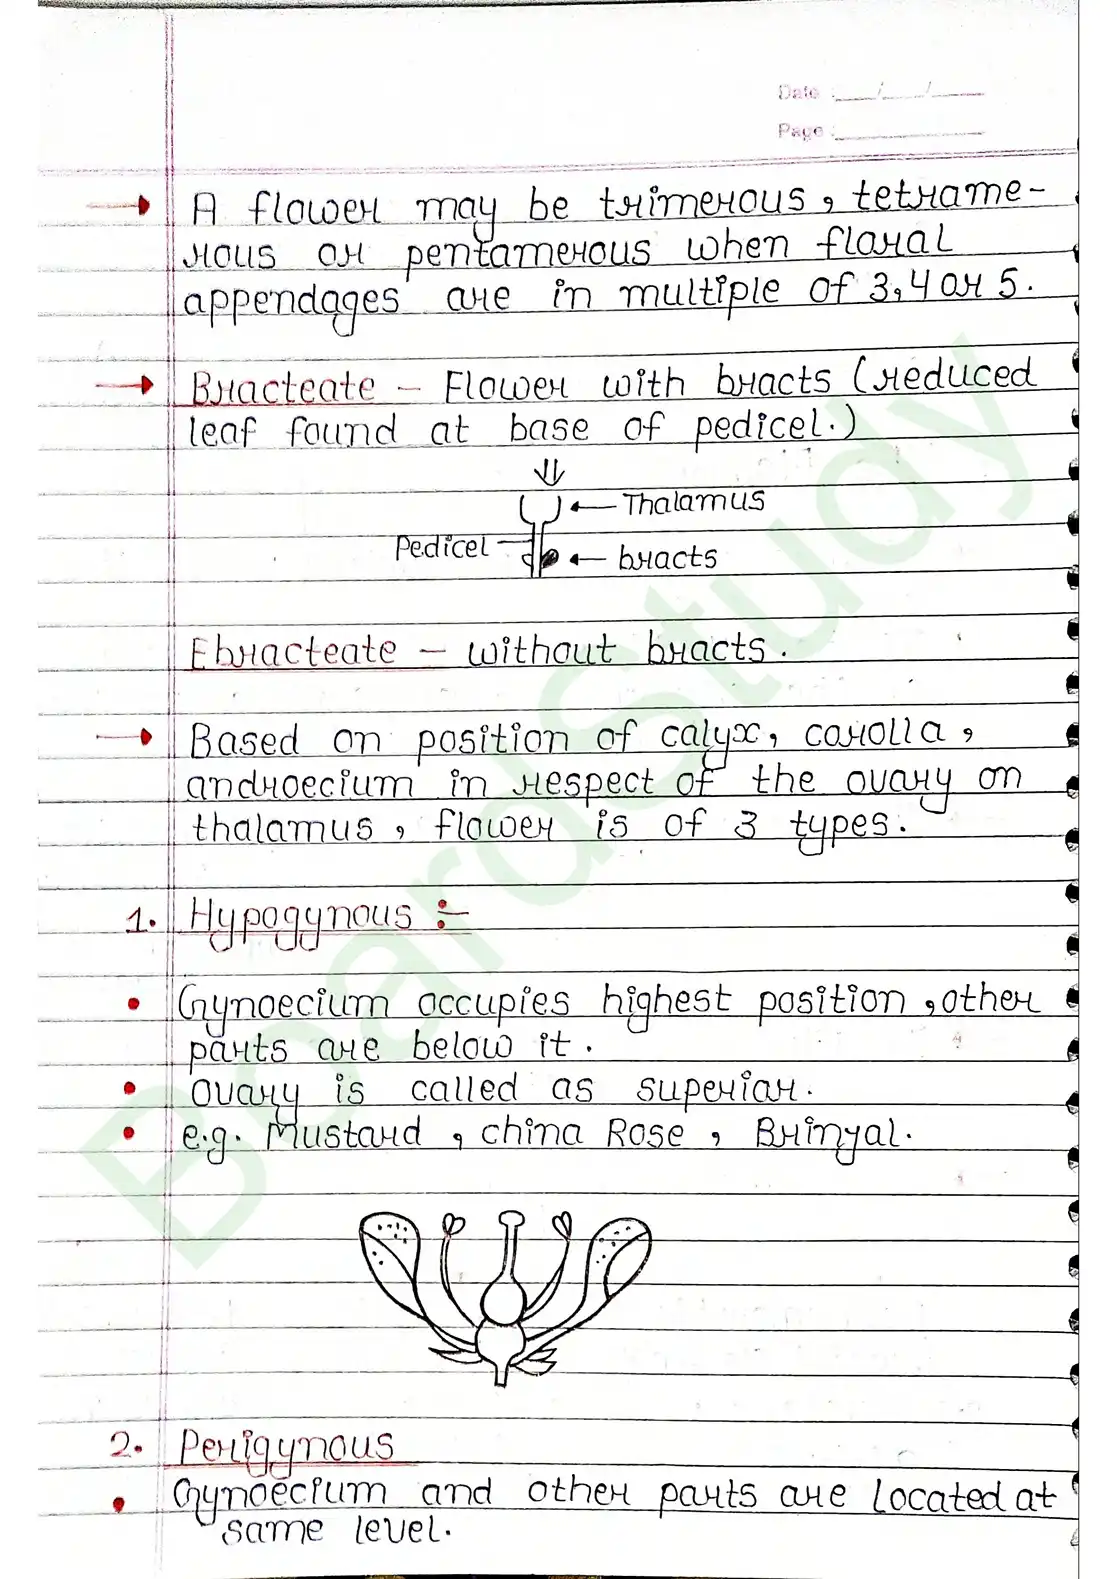 Date : __/__/__
Page : ________
→ A flower may be trimerous, tetrame-
rous or pentamerous when floral
appendages are in multiple of 3,4 or 5.
→ Bracteate - Flower with bracts (reduced
leaf found at base of pedicel.)
Thalamus
Pedicel
bracts
Ebracteate - without bracts.
→ Based on position of calyx, corolla,
androecium in respect of the ovary on
thalamus, flower is of 3 types.
1. Hypogynous :-
• Gynoecium occupies highest position, other
parts are below it.
• Ovary is called as superior.
• e.g. Mustard, china Rose, Brinyal.
2. Perigynous
• Gynoecium and other parts are located at
same level.
BoardStudy